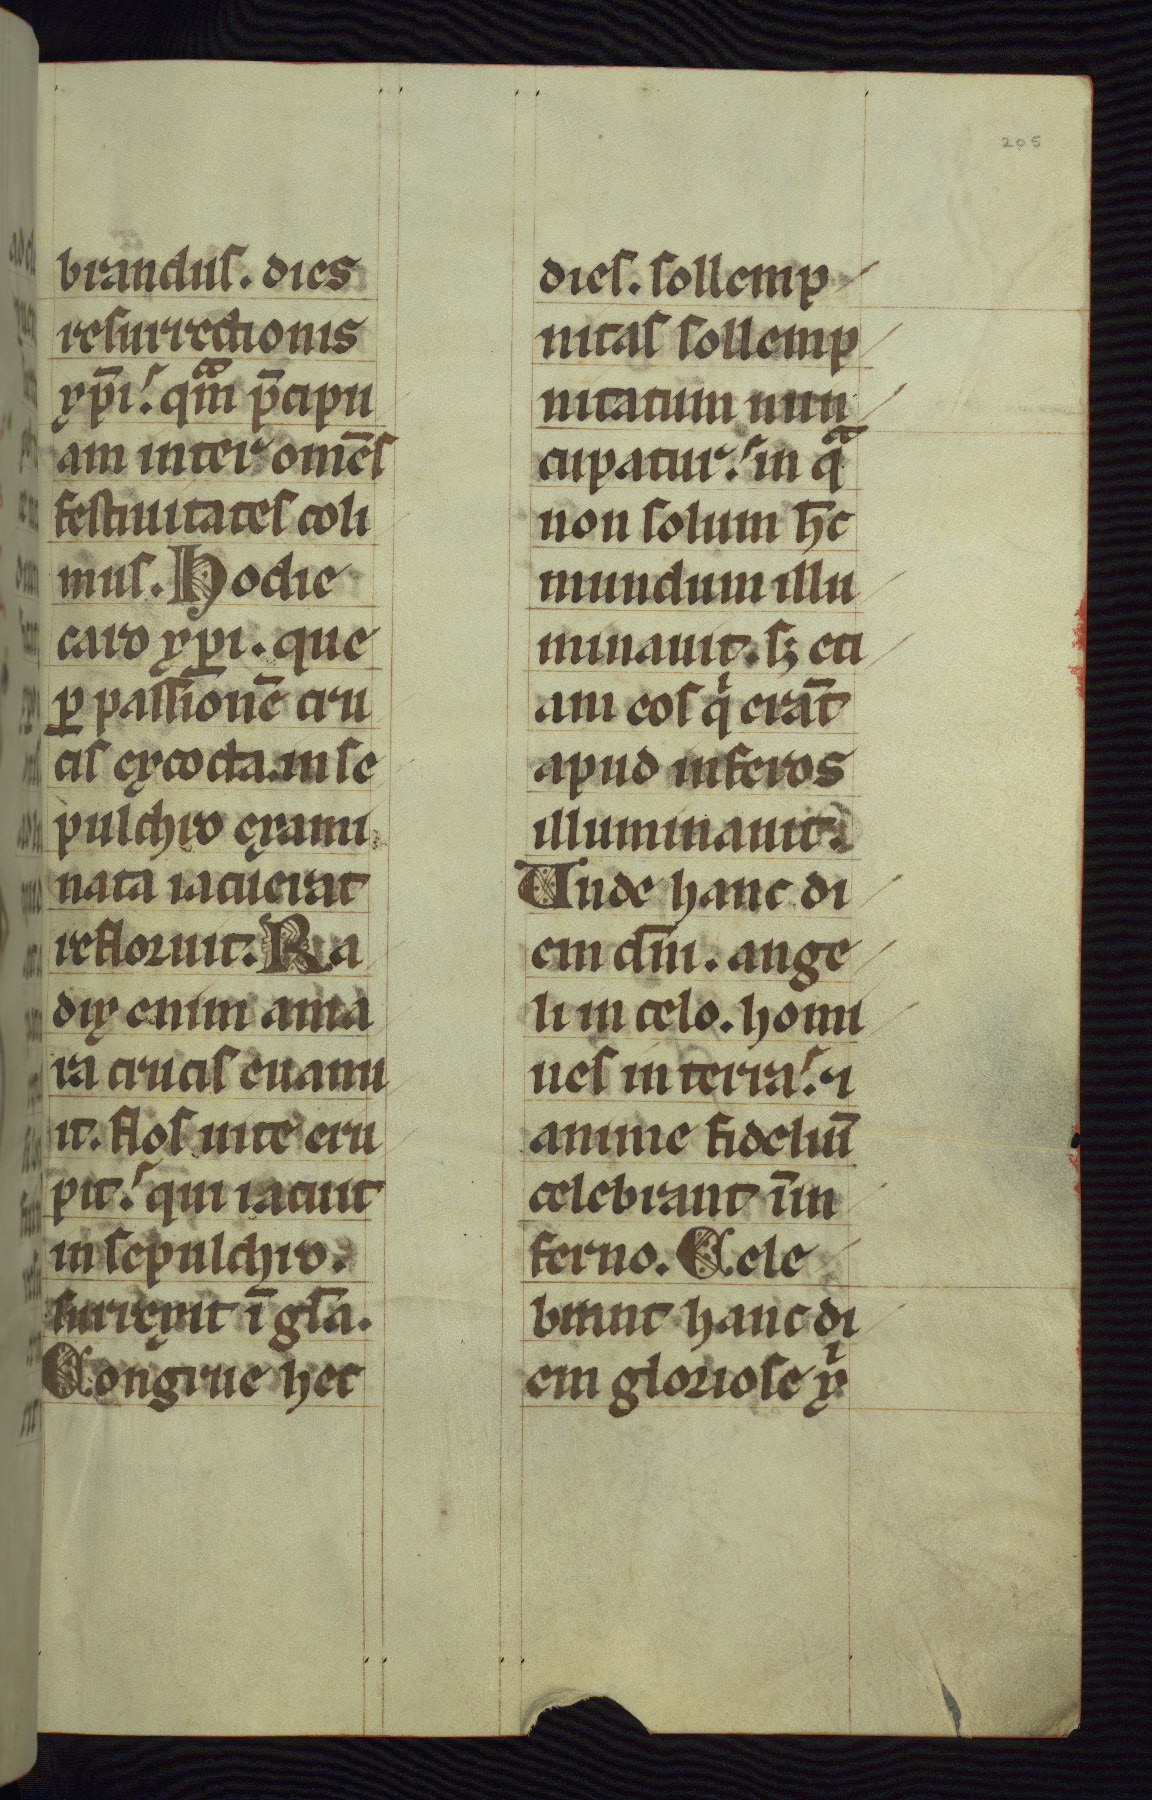 205
brandus. dies
resurrectionis
xp̄i. qᵃm̄ p̄cipu
am inter om̄es
festiuitates coli
mus. Hodie
caro xp̄i. que
ꝑ passionē cru
cis excocta. in se
pulchro exami
nata iacuerat
refloruit. Ra
dix enim ama
ra crucis euanu
it. flos uite eru
pit. qui iacuit
in sepulchro.
surrexit ī gl̄a.
Congrue hec
dies. sollemp
nitas sollemp
nitatum nun
cupatur. in qᵃ
non solum h̄c
mundum illu
minauit. sꝫ eti
am eos qⁱ erāt
apud inferos
illuminauit.
Unde hanc di
em dn̄i. ange
li in celo. homi
nes in terra. ⁊
anime fideliū
celebrant ī in
ferno. Cele
brant hanc di
em gloriose xⁱ